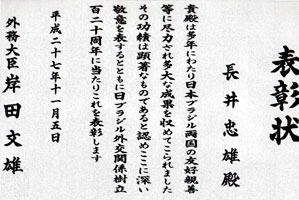 表彰状
長井忠雄殿
貴殿は多年にわたり日本ブラジル両国の友好親善
等に尽力され多大な成果を収めてこられました
その功績は顕著なものであると認めここに深い
敬意を表するとともに日ブラジル外交関係樹立
百二十周年に当たりこれを表彰します
平成二十七年十一月五日
外務大臣 岸田文雄